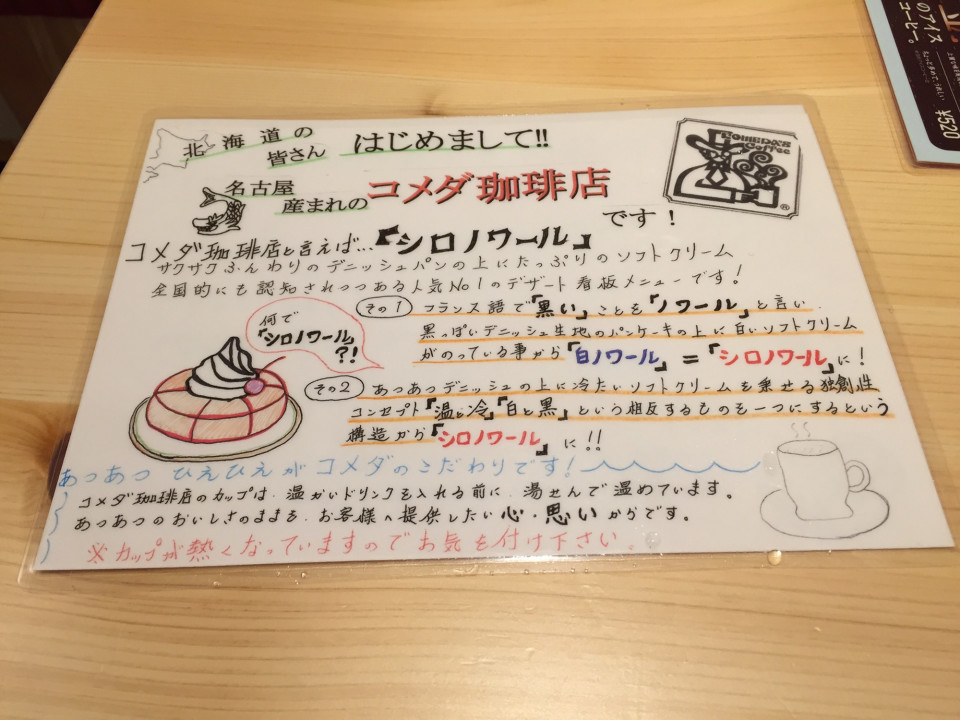 北海道の
皆さん はじめまして!!
名古屋
産まれの コメダ珈琲店
です!
KOMEDA'S
Coffee
®
コメダ珈琲店と言えば…『シロノワール』
サクサクふんわりのデニッシュパンの上にたっぷりのソフトクリーム
全国的にも認知されつつある人気No1のデザート看板メニューです!
何で
『シロノワール』
?!
その1 フランス語で『黒い』ことを『ノワール』と言い、
黒っぽいデニッシュ生地のパンケーキの上に白いソフトクリーム
がのっている事から『白ノワール』=『シロノワール』に!
その2 あつあつデニッシュの上に冷たいソフトクリームを乗せる独創性
コンセプト『温と冷』『白と黒』という相反するものを一つにするという
構造から『シロノワール』に!!
あつあつ ひえひえがコメダのこだわりです!
コメダ珈琲店のカップは、温かいドリンクを入れる前に、湯せんで温めています。
あつあつのおいしさのままを、お客様へ提供したい心・思いからです。
※カップが熱くなっていますのでお気を付け下さい。
のアイス
コーヒー。
¥520